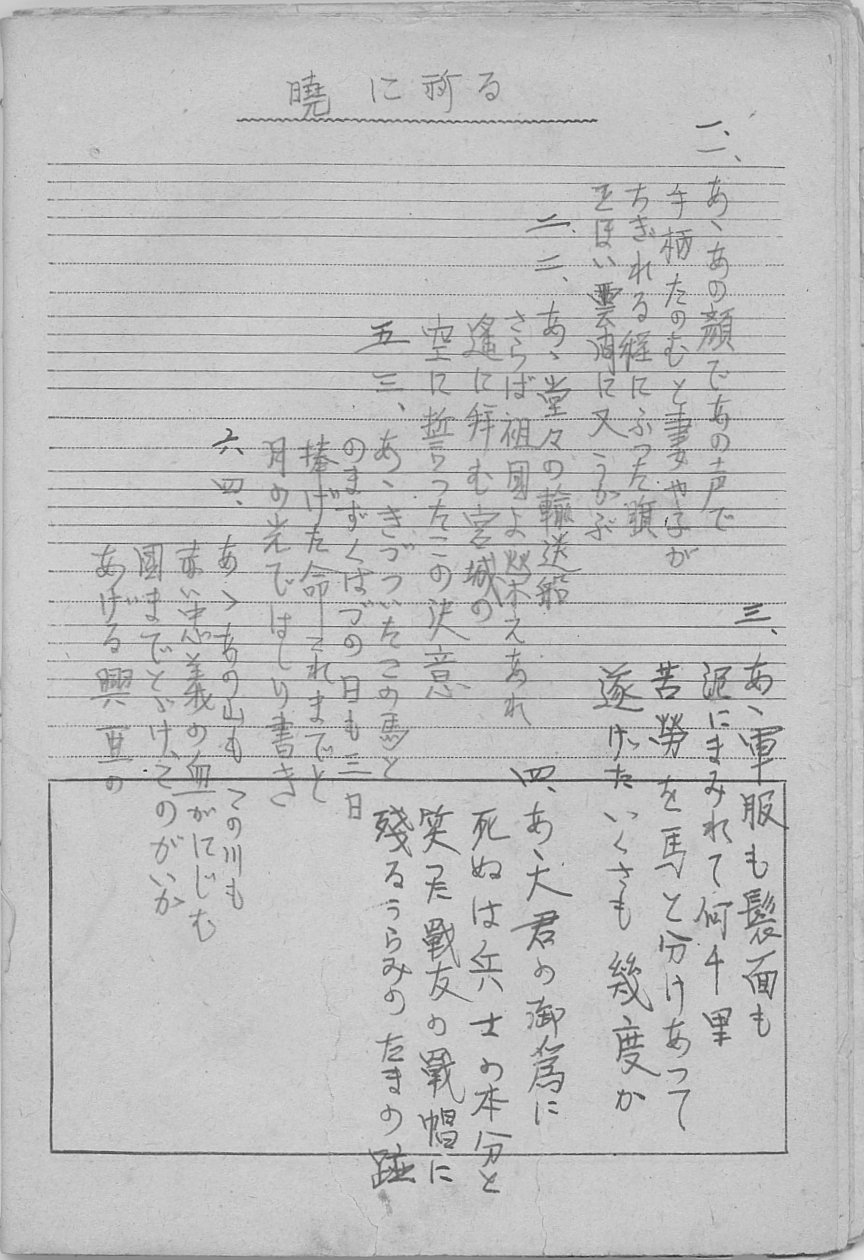 暁に祈る
一、あゝあの顔であの声で
手柄たのむと妻や子が
ちぎれる程にふった旗
とほい雲間に又うかぶ
二 二、あゝ堂々の輸送船
さらば祖國よ榮えあれ
遙に拜む宮城の
空に誓ったこの決意
三、あゝ軍服も髪面も
泥にまみれて何千里
苦勞を馬と分けあって
遂げたいくさも幾度か
四、あゝ大君の御為に
死ぬは兵士の本分と
笑った戰友の戰帽に
殘るうらみのたまの跡
五 三、あゝきづついたこの馬と
のまずくはづの日も三日
捧げた命これまでと
月の光ではしり書き
六 四、あゝあの山もこの川も
赤い忠義の血がにじむ
國までとゞけ、このがいか
あげる興亜の